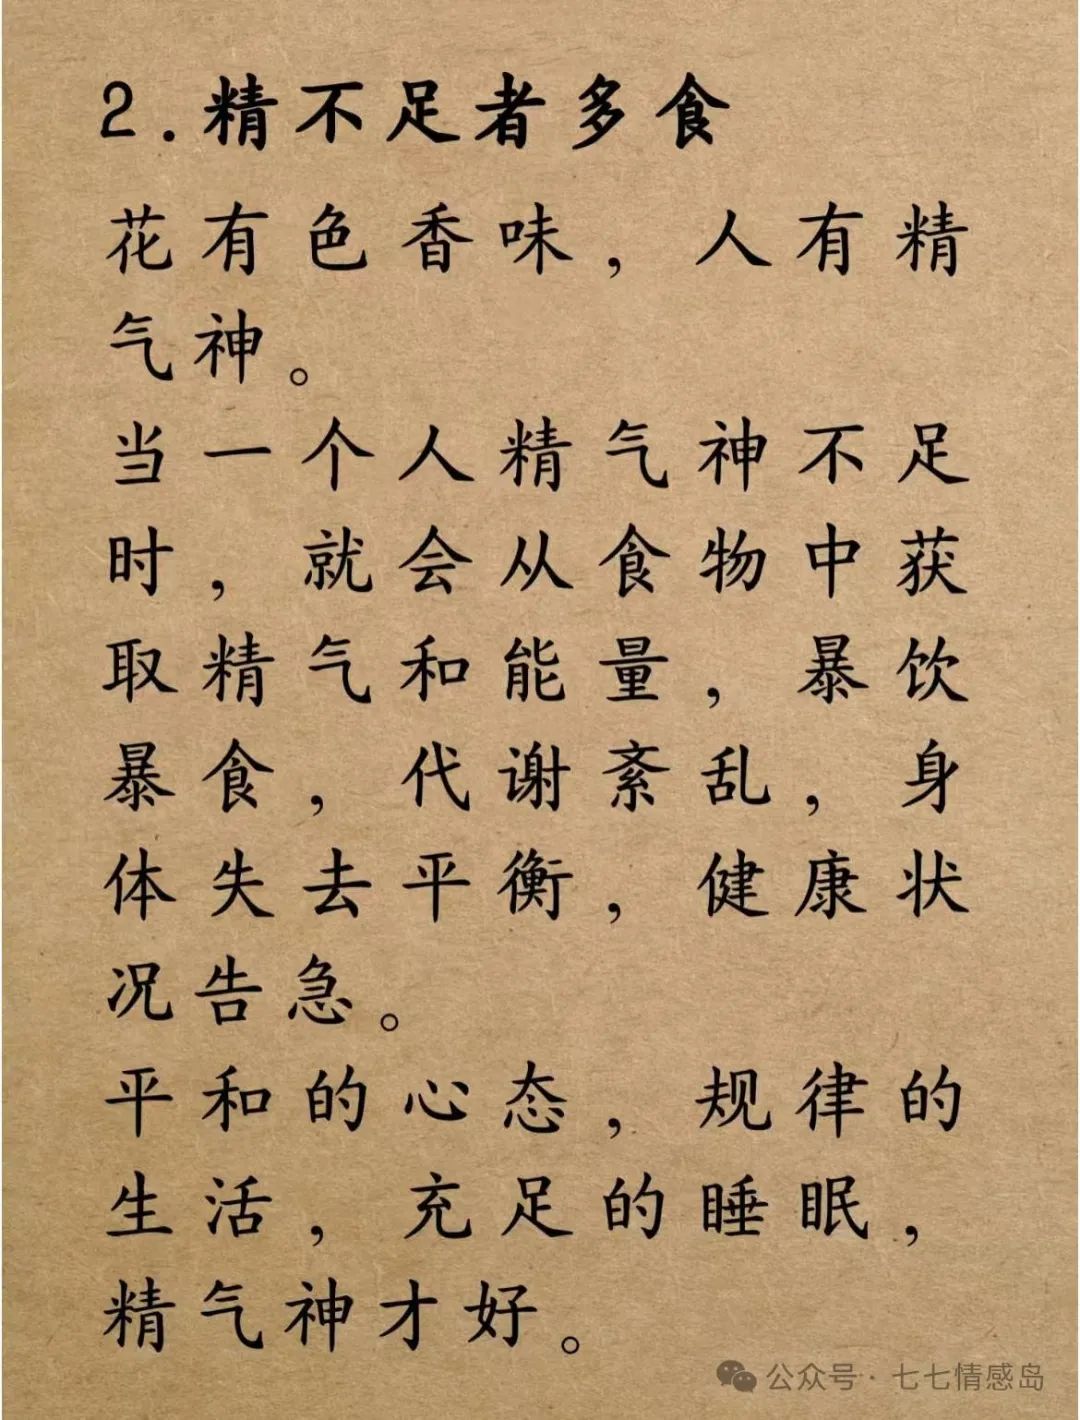 2.精不足者多食
花有色香味，人有精
气神。
当一个人精气神不足
时，就会从食物中获
取精气和能量，暴饮
暴食，代谢紊乱，身
体失去平衡，健康状
况告急。
平和的心态，规律的
生活，充足的睡眠，
精气神才好。
公众号·七七情感岛